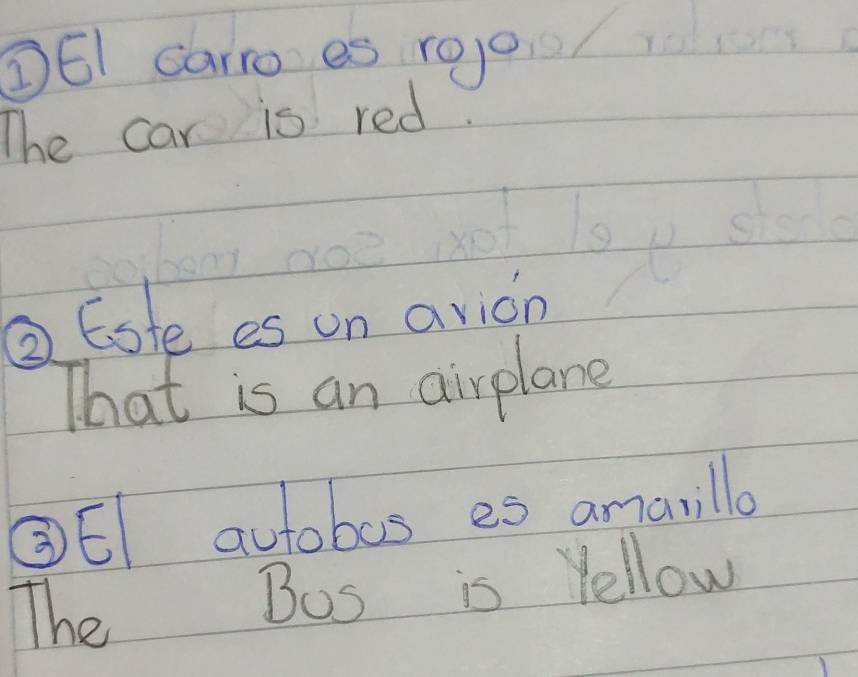 ① El carro es rojo
The car is red.
② Este es un avión
That is an airplane
③ El autobus es amarillo
The Bus is Yellow